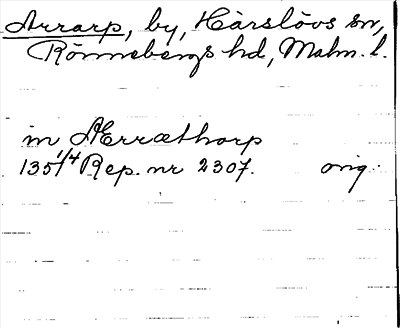 Arrarp, by, Hårslövs sn,
Rönnebergs hd, Malm. l.
in Ærræthorp
135 1/4 Rep. nr 2307. orig.